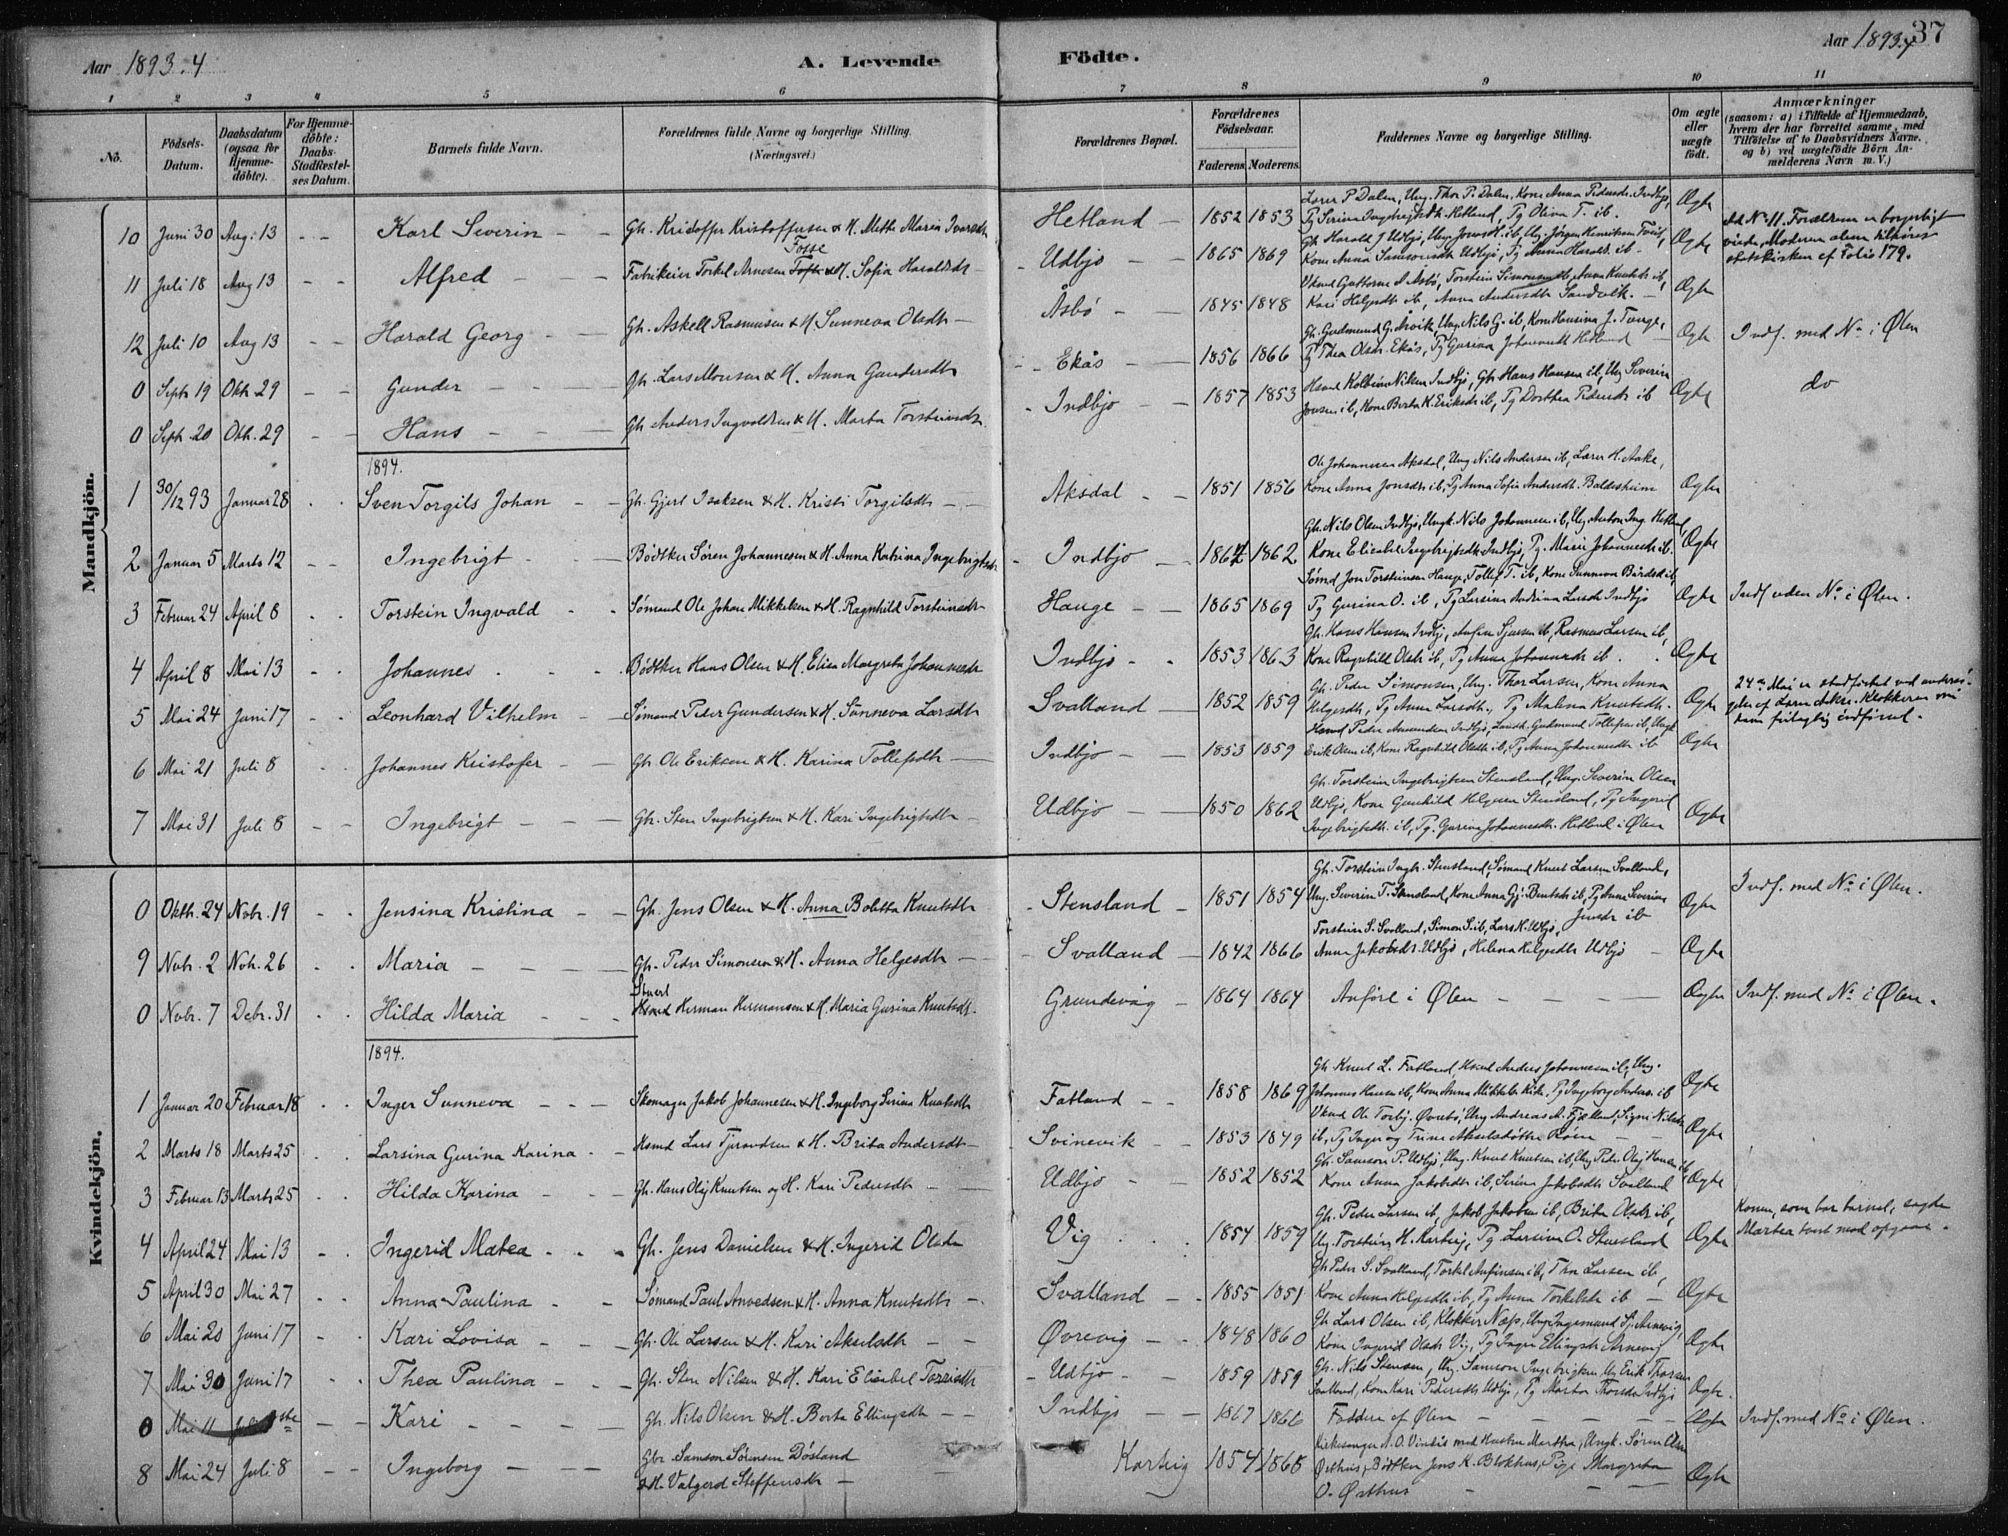 Aar 1893.4
A. Levende Fødte.
Aar 1893.4
37
1 2 3 4 5 6 7 8 9 10 11
No.
Fødsels-Datum.
Daabsdatum (ogsaa for Hjemmedøbte).
For Hjemmedøbte: Daabs-Stadfæstelses Datum.
Barnets fulde Navn.
Forældrenes fulde Navne og borgerlige Stilling. (Næringsvei.)
Forældrenes Bopæl.
Forældrenes Fødselsaar.
Faderens. Moderens.
Faddernes Navne og borgerlige Stilling.
Om ægte eller uægte født.
Anmærkninger (saasom: a) i Tilfælde af Hjemmedaab, hvem der har forrettet samme, med Tilføielse af to Daabsvidners Navne. og b) ved uægtefødte Børn Anmelderens Navn m. V.)
Mandkjön.
10 Juni 30 Aug. 13 - - Karl Severin - - Gh. Kristoffer Kristoffersen & H. Mette Maria Ivarsdtr Hetland - 1852 1853 Lærer P Dalen, Ung. Thor P. Dalen, Kone Anna Pedersdtr. Indbjo, Pg Serina Ingebrigtsdtr Hetland, Pg Oliva T. ib. Ægte
11 Juli 18 Aug 13 - - Alfred - - - Fabrikeier Torkel Arnesen Fosse & H. Sofia Haraldsdtr - Udbjo - - 1865 1869 Gh Harald J Udbjo, Kone Anna Samsonsdtr Udbjo, Pg Anna Haraldsdtr ib - Ægte Ad No 11. Forældrene er borgerligt viede, Moderen alene tilhører statskirken cf Folio 179.
12 Juli 10 Aug 13 - - Harald Georg - - Gh. Askell Rasmussen & H Sunneva Olsdtr - Åsbø - - 1845 1848 Kari Helgesdtr ib, Anna Andersdtr Sandvik. - Ægte
0 Septr 19 Oktr 29 - - Gunder - - - Gh. Lars Monsen & H. Anna Gundersdtr Ekås - - 1856 1866 Gh. Gudmund G. Årvik, Ung Nils G. ib, Kone Hansina J. Tunge, Pg Thea Olsdtr. Ekås, Pg Gurina Johannesdtr Hetland - Ægte Indf. med No i Ølen
0 Septr. 20 Okt. 29 - - Hans - - - Gh Anders Ingvaldsen & H. Marta Torsteinsdtr - Indbjo - - 1857 1853 Gh Hans Hansen ib, Ung Severin Jonsen ib, Kone Berta K. Eriksdtr ib, Pg Dorthea Pedersdtr ib Ægte do
1894.
1 30/12 93 Januar 28 - - Sven Torgils Johan - - Gh. Gjert Isaksen & H. Kristi Torgilsdtr - - Aksdal - - 1851 1856 Ole Johannesen Aksdal, Ung Nils Andersen ib, Lærer H. Aake, Kone Anna Jonsdtr ib, Pg Anna Sofia Andersdtr. Baldesheim Ægte
2 Januar 5 Marts 12 - - Ingebrigt - - Bødtker Sören Johannesen & H. Anna Katrina Ingebrigtsdtr - Indbjo - 1864 1862 Gh. Nils Olsen Indbjo, Ungk. Nils Johannesen ib, Ung Anton Ing. Hetland, Kone Elisabet Ingebrigtsdtr Indbjo, Pg. Marie Johannesdtr ib. Ægte
3 Februar 24 April 8 - - Torstein Ingvald - - Sømand Ole Johan Mikkelsen & H. Ragnhild Torsteinsdtr - Hauge - - 1865 1869 Sømd Jon Torsteinsen Hauge, Tollef T. ib, Kone Sunneva Bårdsd ib, Pg Gurina O. ib, Pg Larsina Andrina Larsdtr Indbjo Ægte Indf uden No i Ølen.
4 April 8 Mai 13 - - Johannes - - Bødtker Hans Olsen & H. Elisa Margreta Johannesdtr Indbjo - - 1853 1863 Gh. Hans Hansen Indbj, Rasmus Larsen ib, Kone Ragnhild Olsdtr ib, Pg Anna Johannesdtr ib. Ægte
5 Mai 24 Juni 17 - - Leonhard Vilhelm - - Sømand Peder Gundersen & H. Sunneva Larsdtr Svalland - - 1852 1859 Gh. Peder Simonsen, Ung. Thor Larsen, Kone Anna Helgesdtr, Pg Anna Larsdtr., Pg Malena Knutsdtr. Ægte 24de Mai er stadfæstet ved
6 Mai 21 Juli 8 - - Johannes Kristofer - - Gh. Ole Eriksen & H. Karina Tollefsdtr - Indbjo - - 1853 1859 Erik Olsen ib, Kone Ragnhild Olsdtr ib, Pg Anna Johannesdtr ib Ægte
7 Mai 31 Juli 8 - - Ingebrigt - - - Gh. Sten Ingebrigtsen & H. Kari Ingebrigtsdtr - Udbjo - - 1850 1862 Gh. Torstein Ingebrigtsen Stensland, Ung. Severin Olsen Udbjo, Kone Gunhild Helgesen Stensland, Pg Ingerid Ingebrigtsdtr. ib, Pg. Gurina Johannesdtr. Hetland i Ølen Ægte
Kvindekjön.
0 Oktb. 24 Novr. 19 - - Jensina Kristina - - Gh. Jens Olsen & H. Anna Boletta Knutsdtr - Stensland - 1851 1854 Gh. Torstein Ingbr. Stensland, Sømand Knut Larsen Svalland, Ung. Severin T. Stensland, Ægte Indf. med No i Ølen.
9 Novr. 2 Novr. 26 - - Maria - - - - Gh. Peder Simonsen & H. Anna Helgesdtr - - Svalland - 1842 1866 Torstein S. Svalland, Simon S. ib, Lars H. Udbjo, Anna Jakobsdtr. Udbjo, Helena Helgesdtr Udbjo - Ægte
0 Novr. 7 Debr. 31 - - Hilda Maria - - - Herman Hermansen & H. Maria Gurina Knutsdtr. Grundevåg - 1864 1864 Anføre i Ølen - - - - Ægte Indf. med No i Ølen.
1894.
1 Januar 20 Februar 18 - - Inger Sunneva - - - Skomager Jakob Johannesen & H. Ingeborg Serina Knutsdtr Fatland - - 1858 1869 Gh Knut L. Fatland, Husmd Anders Johannesen ib, Ung. Johannes Hansen ib, Ægte
2 Marts 18 Marts 25 - - Larsina Gurina Karina - - Husmd Lars Tjerandsen & H. Brita Andersdtr - Svinevik - - 1853 1849 ib, Pg Inger og Trine Akselsdøttre Röen - - Ægte
3 Februar 13 Marts 25 - - Hilda Karina - - Gh. Hans Olaj Knutsen og H. Kari Pedersdtr - - Udbjo - - 1852 1852 Gh. Samson P. Udbjo, Ung. Knut Knutsen ib, Ung Peder Olaj Hansen ib, Kone Anna Jakobsdtr ib, Serina Jakobsdtr Svalland Ægte
4 April 24 Mai 13 - - Ingerid Matea - - - Gh. Jens Danielsen & H. Ingerid Olsdtr Vig . . . 1854 1859 Gh. Peder Larsen ib, Jakob Jakobsen ib, Brita Olsdtr ib, Ung. Torstein H. Kartvig, Pg Larsina O. Stensland Ægte Konen, som bar barnet, sagde Martea
5 April 30 Mai 27 - - Anna Paulina - - Sømand Paul Anvedsen & H. Anna Knutsdtr - Svalland - - 1855 1851 Gh Peder S. Svalland, Torkel Anfinsen ib, Thor Larsen ib, Kone Anna Helgesdtr ib, Pg Anna Torkelsdtr ib - Ægte
6 Mai 20 Juni 17 - - Kari Lovisa - - Gh. Ole Larsen & H. Kari Akselsdtr - - Øvrevig - - 1848 1860 Gh Lars Olsen ib, Klokker Næss, Ung Ingemund Sj. Arnevig, Kone Ingrid Olsdtr Vig, Pg Inger Ellingsdtr Arnevig Ægte
7 Mai 30 Juni 17 - - Thea Paulina - - Gh. Sten Nilsen & H. Kari Elisabet Torrisdtr - Udbjo - - 1859 1859 Gh. Nils Stensen, Ung. Samson Ingebrigtsen, Svalland, Kone Kari Pedersdtr Udbjo, Pg Marta Thorsdtr Indbjo Ægte.
0 Mai 11 - - Kari - - - - Gh. Nils Olsen & H. Berta Ellingsdtr - - Indbjo - - 1867 1866 Faddere cf Ølen - - - - Ægte Indf. med No i Ølen.
8 Mai 24 Juli 8 - - Ingeborg - - - Gbr. Samson Sörensen Bösland & H. Valgerd Steffensdtr - Kartvig 1854 1865 Kirkesanger med Hustru Martha, Ungk. Sören Olsen Østhus, Bødtker Jens K. Blokhus, Pige Margreta O. Østhus - - Ægte